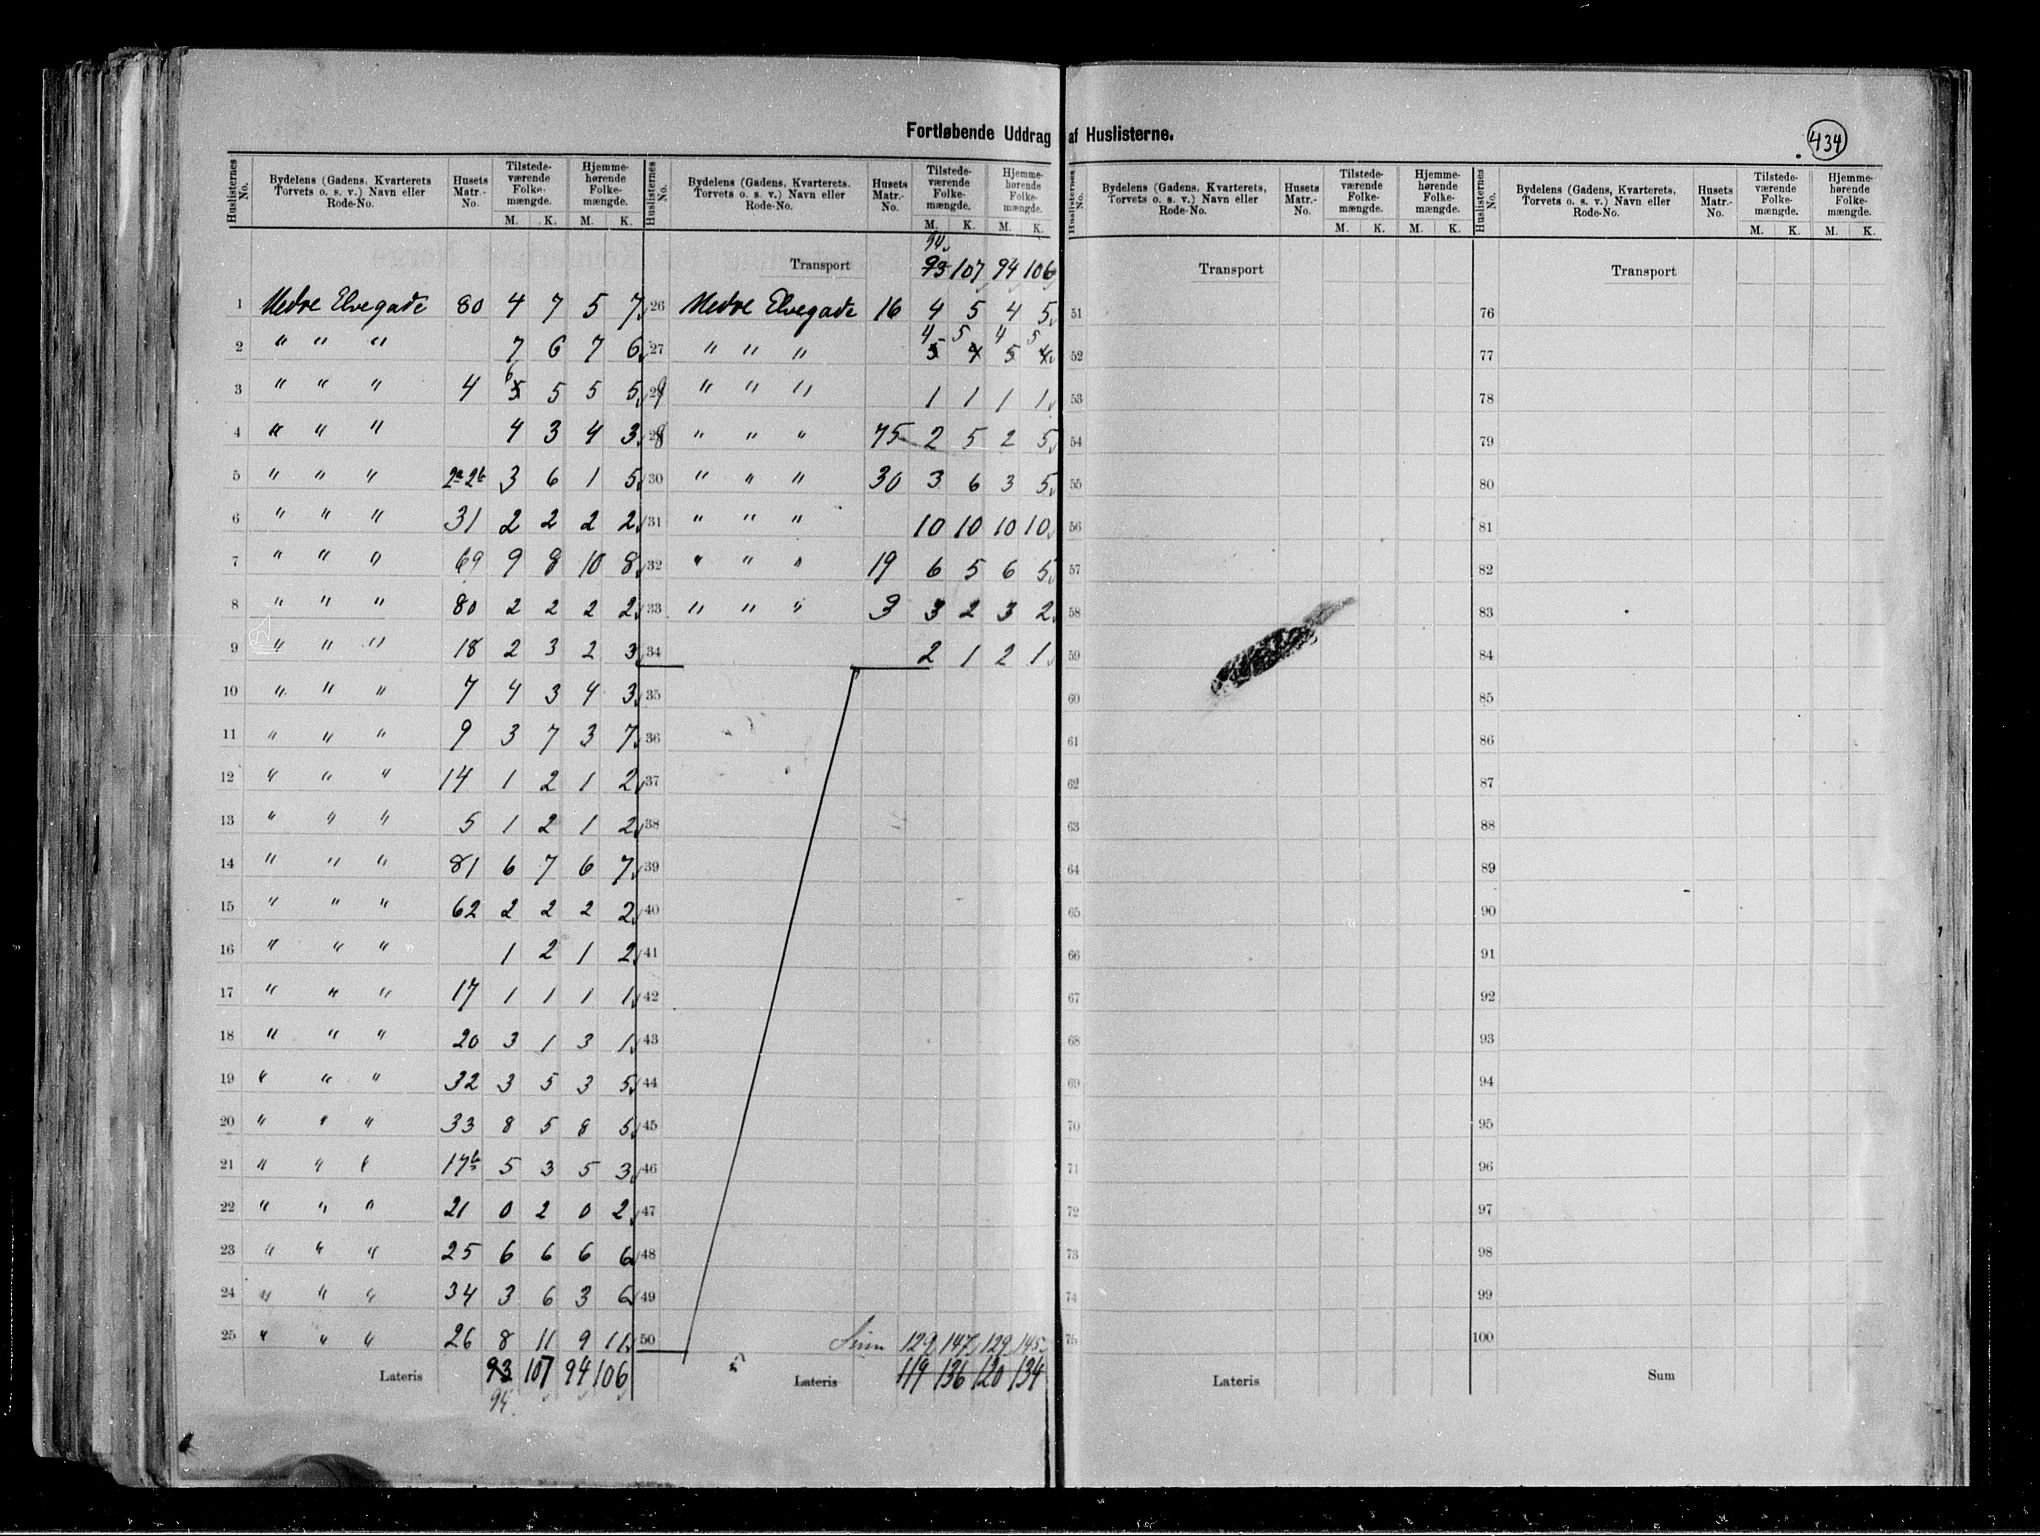 Fortløbende Uddrag af Huslisterne.
434
Huslisternes No. Bydelens (Gadens, Kvarterets Torvets o. s. v.) Navn eller Rode-No. Husets Matr.-No. Tilstede-værende Folke-mængde. M. K. Hjemme-hørende Folke-mængde. M. K.
1 Nedre Elvegade 80 4 7 5 7
2 " " " 7 6 7 6
3 " " " 4 5 6 5 5 5
4 " " " 4 3 4 3
5 " " " 2a 2b 3 6 1 5
6 " " " 31 2 2 2 2
7 " " " 69 9 8 10 8
8 " " " 80 2 2 2 2
9 " " " 18 2 3 2 3
10 " " " 7 4 3 4 3
11 " " " 9 3 7 3 7
12 " " " 14 1 2 1 2
13 " " " 5 1 2 1 2
14 " " " 81 6 7 6 7
15 " " " 62 2 2 2 2
16 " " " 1 2 1 2
17 " " " 17 1 1 1 1
18 " " " 20 3 1 3 1
19 " " " 32 3 5 3 5
20 " " " 33 8 5 8 5
21 " " " 17b 5 3 5 3
22 " " " 21 0 2 0 2
23 " " " 25 6 6 6 6
24 " " " 34 3 6 3 6
25 " " " 26 8 11 9 11
Lateris 93 107 94 106
94
Huslisternes No. Bydelens (Gadens, Kvarterets. Torvets o. s. v.) Navn eller Rode-No. Husets Matr.-No. Tilstede-værende Folke-mængde. M. K. Hjemme-hørende Folke-mængde. M. K.
94
Transport 93 107 94 106
26 Nedre Elvegade 16 4 5 4 5
4 5 4 5
27 " " " 5 4 5 4
29 " " " 1 1 1 1
28 " " " 75 2 5 2 5
30 " " " 30 3 6 3 5
31 " " " 10 10 10 10
32 " " " 19 6 5 6 5
33 " " " 3 3 2 3 2
34 2 1 2 1
35
36
37
38
39
40
41
42
43
44
45
46
47
48
49
50 Sum 129 147 129 145
Lateris 119 136 120 134
Huslisternes No. Bydelens (Gadens, Kvarterets, Torvets o. s. v.) Navn eller Rode-No. Husets Matr.-No. Tilstede-værende Folke-mængde. M. K. Hjemme-hørende Folke-mængde. M. K.
Transport
51
52
53
54
55
56
57
58
59
60
61
62
63
64
65
66
67
68
69
70
71
72
73
74
75
Lateris
Huslisternes No. Bydelens (Gadens, Kvarterets, Torvets o. s. v.) Navn eller Rode-No. Husets Matr.-No. Tilstede-værende Folke-mængde. M. K. Hjemme-hørende Folke-mængde. M. K.
Transport
76
77
78
79
80
81
82
83
84
85
86
87
88
89
90
91
92
93
94
95
96
97
98
99
100
Sum